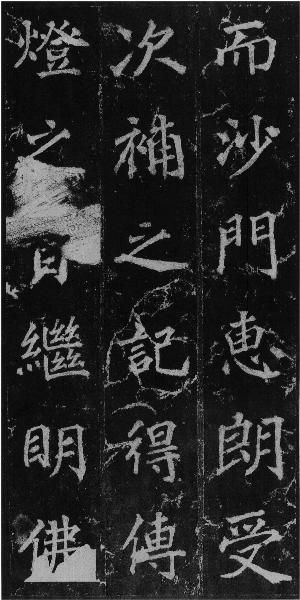 而沙門恵朗受
次補之記得傳
燈之旨繼明佛